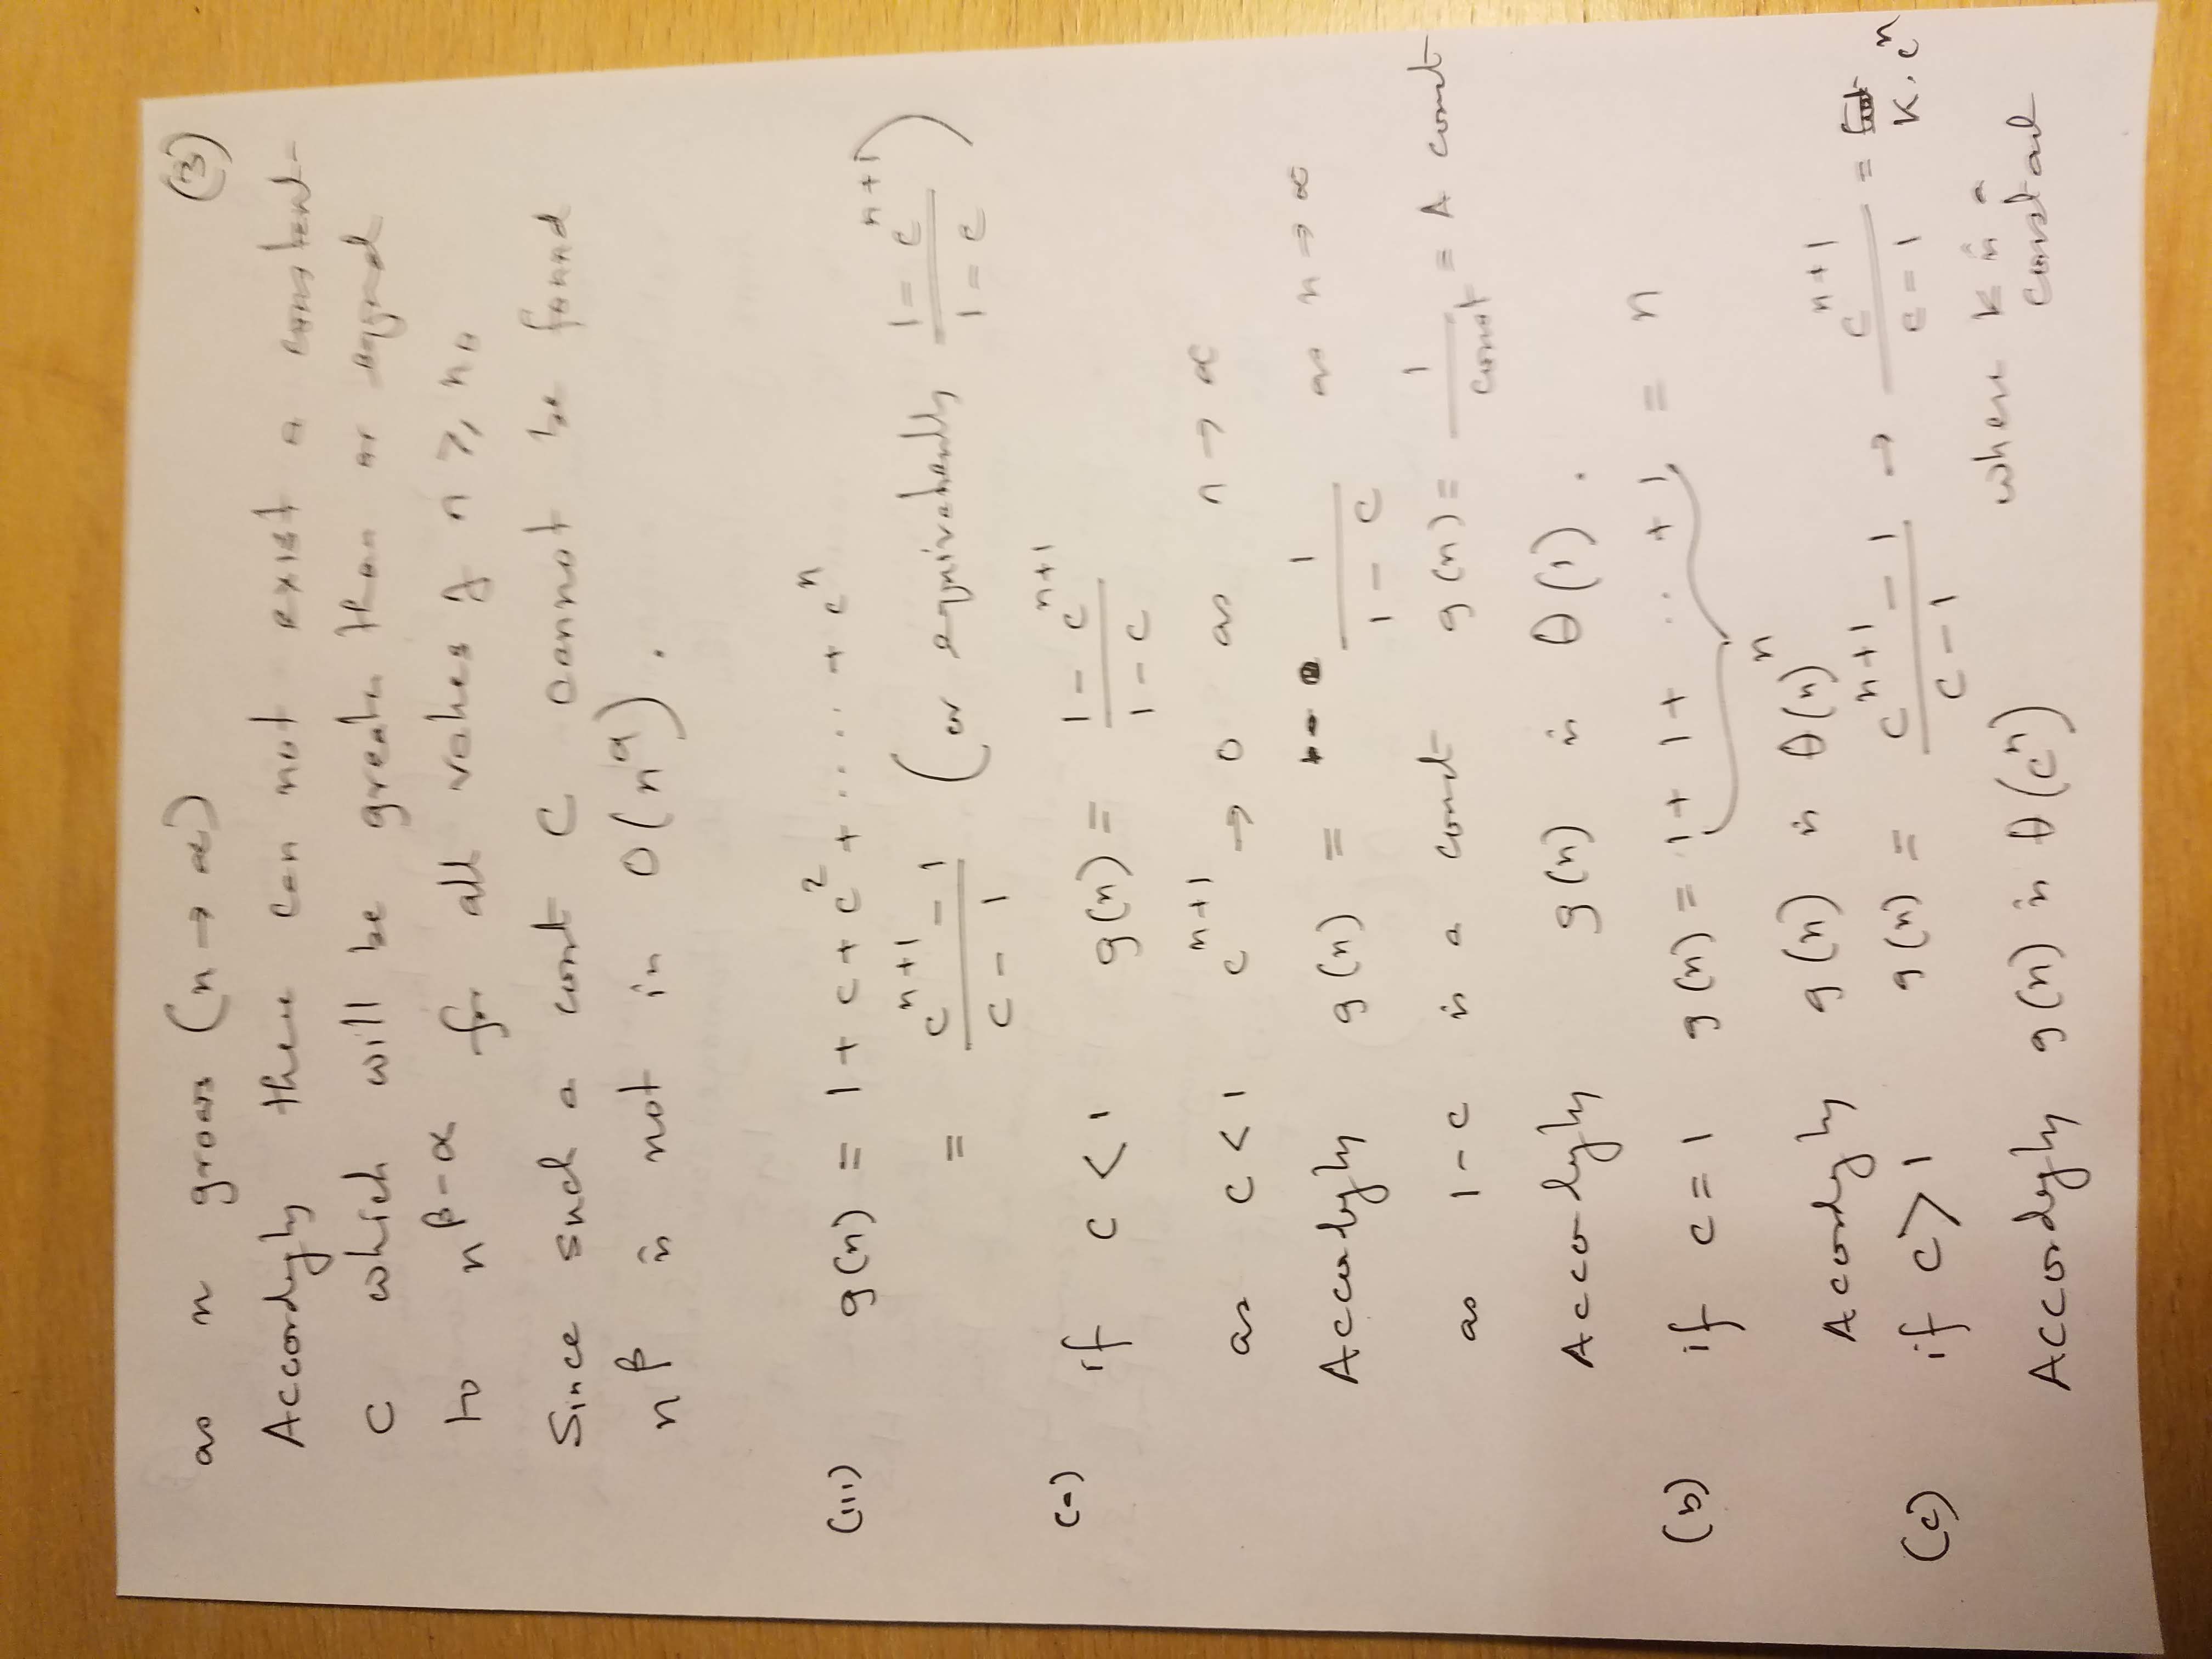 (3)
as n grows (n → ∝)
Accordingly there can not exist a constant
C which will be greater than or equal
to n^{β-α} for all values of n ≥ n₀
Since such a const C cannot be found
n^β is not in O(n^α).
(iii) g(n) = 1 + c + c² + ..... + c^n
= \frac{c^{n+1} - 1}{c - 1} (or equivalently \frac{1 - c^{n+1}}{1 - c})
(a) if c < 1 g(n) = \frac{1 - c^{n+1}}{1 - c}
as c < 1 c^{n+1} → 0 as n → ∝
Accordingly g(n) = \frac{1}{1 - c} as n → ∞
as 1 - c is a const g(n) = \frac{1}{const} = A const
Accordingly g(n) is θ(1).
(b) if c = 1 g(n) = 1 + 1 + .. + 1 = n
n
Acordingly g(n) is θ(n)
(c) if c > 1 g(n) = \frac{c^{n+1} - 1}{c - 1} → \frac{c^{n+1}}{c - 1} = K . c^n
where K is a
constant
Accordingly g(n) is θ(c^n)